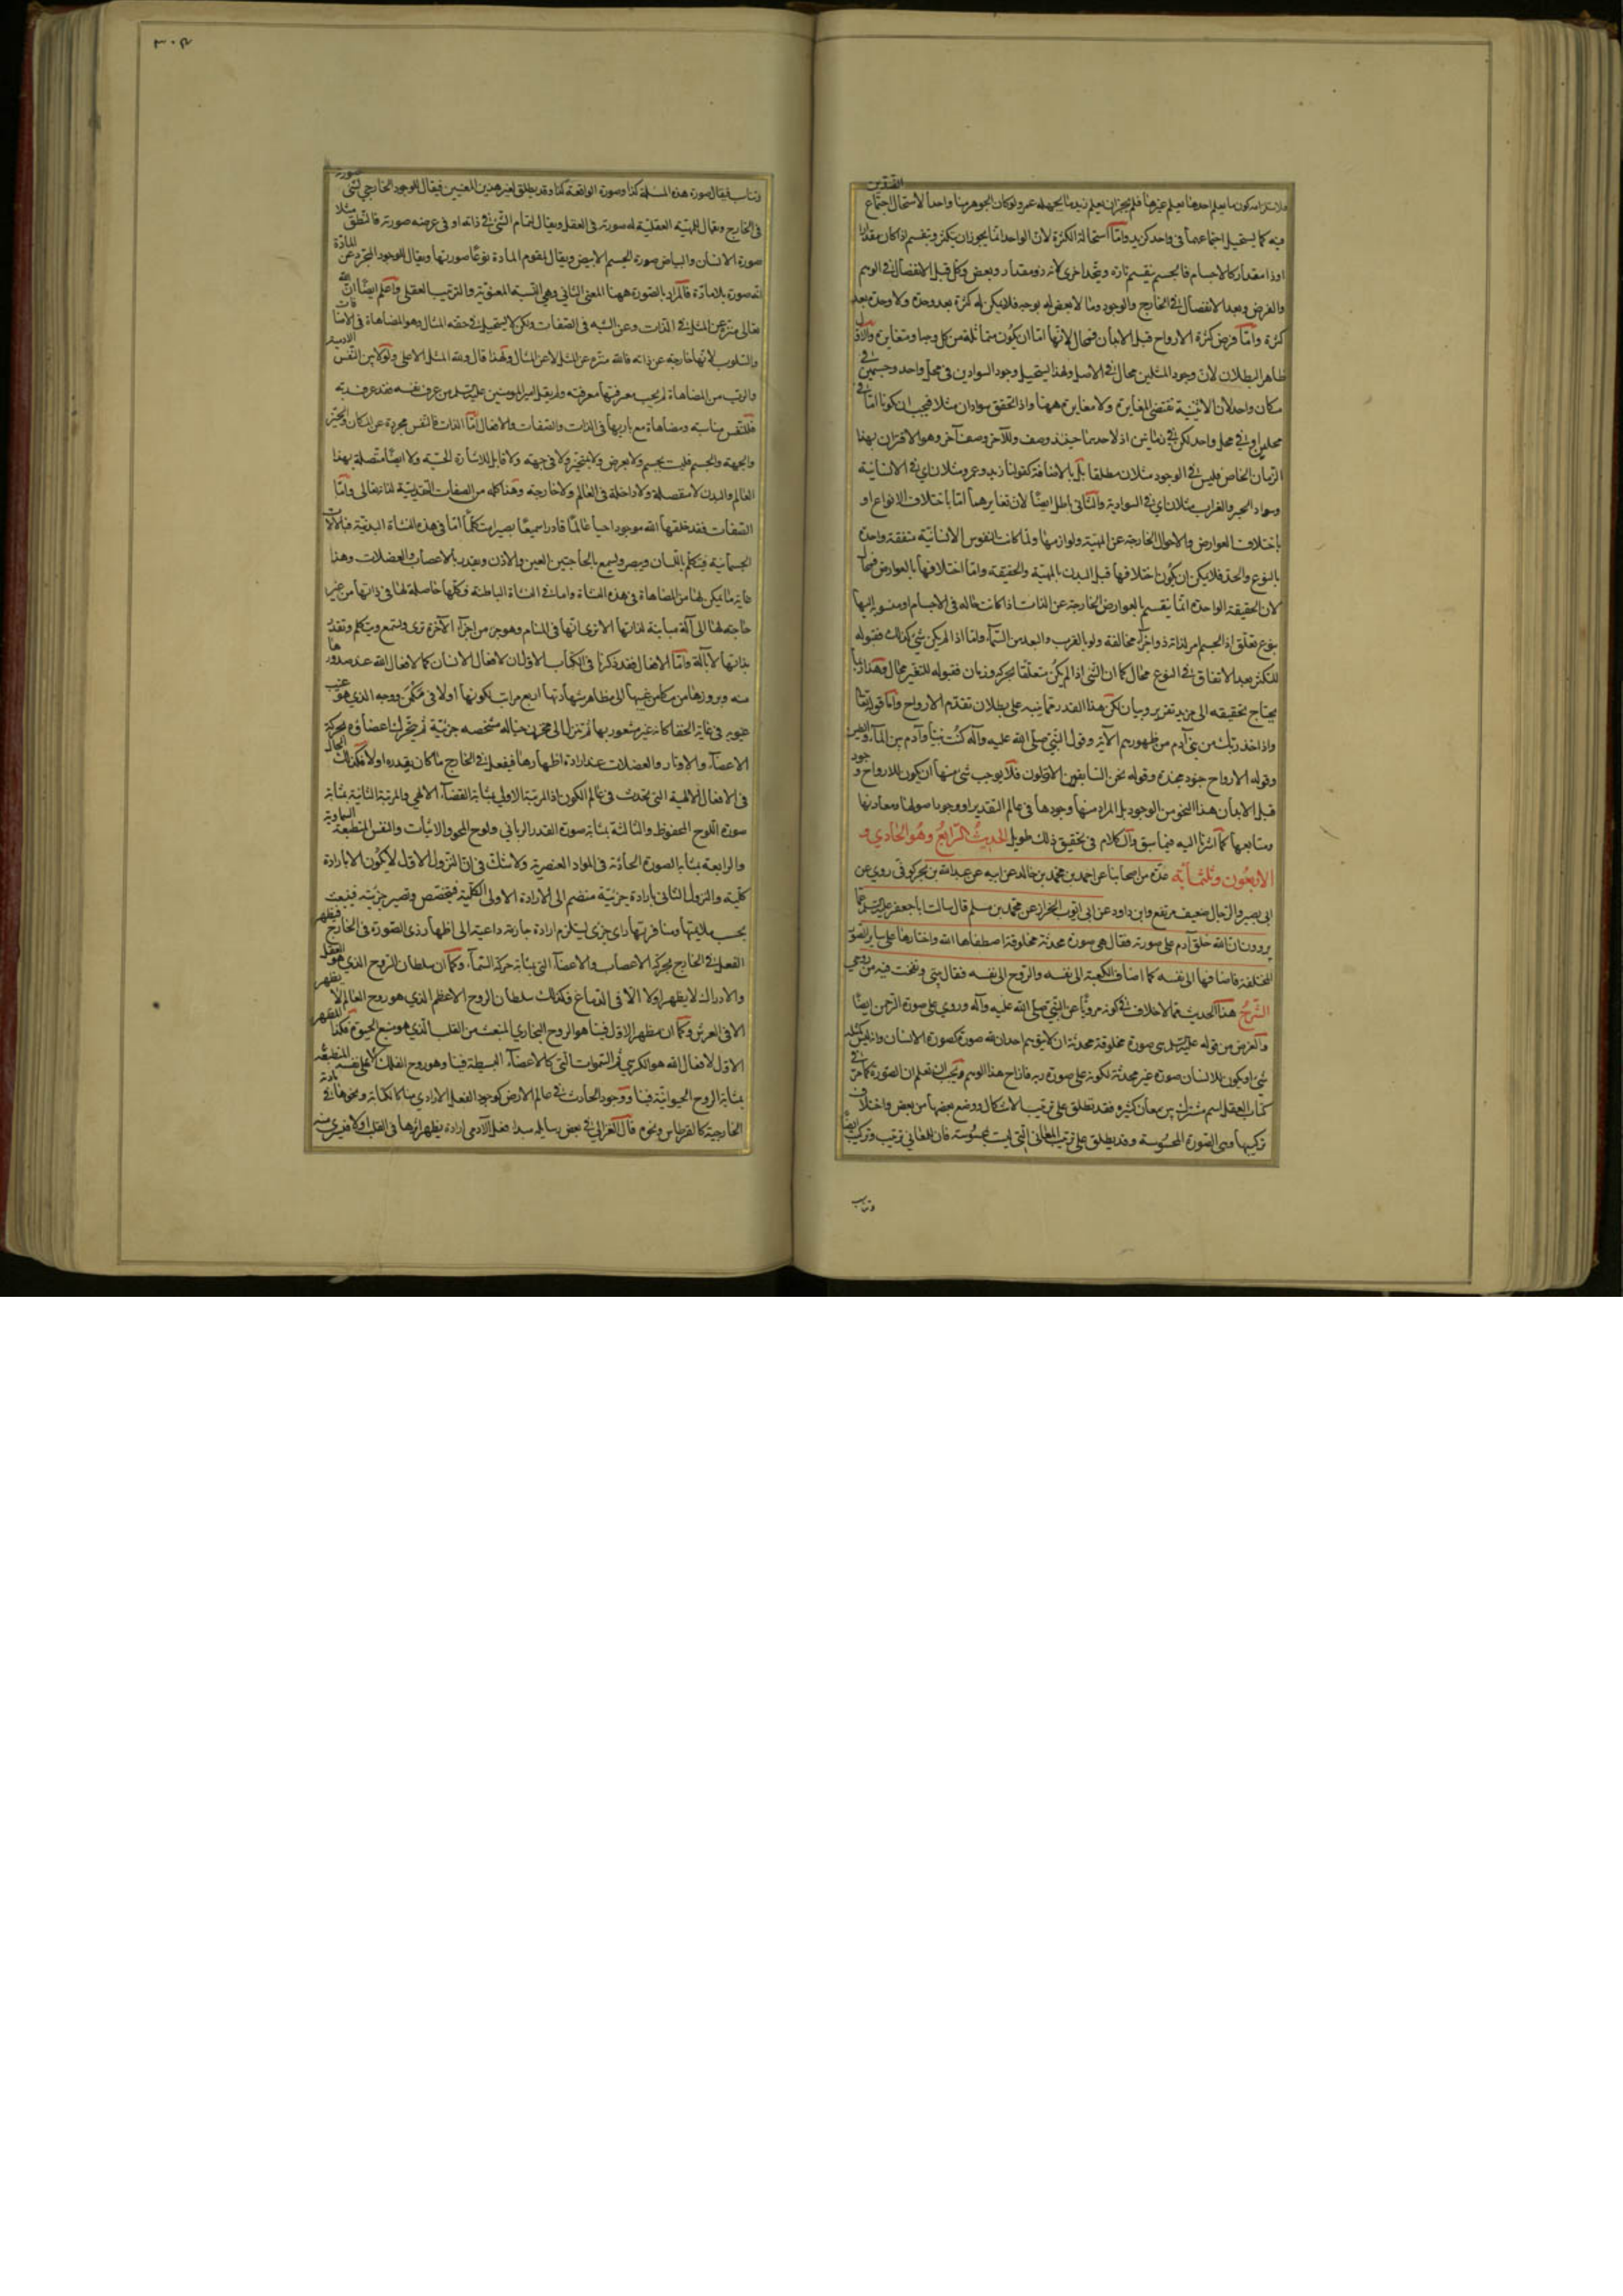 فلاستلزامه كون ما يعلم احدهما يعلم غيرهما فلم يجز ان يعلم زيد ما يجهله عمرو ولو كان الجوهر منا واحدا لاستحال اجتماع الضدين
فيه كما يستحيل اجتماعهما فى واحد كزيد واما استحالة الكثرة لان الواحد انما يجوز ان يكثر وينقسم اذا كان مقدارا
او ذا مقدار كالاجسام فالجسم ينقسم تارة ويتحد اخرى لانه ذو مقدار وبعض وكل قبل الانفصال فى الوهم
والفرض وبعد الانفصال فى الخارج والوجود وما لا بعض له بوجه فلا يمكن له كثرة بعد وحدة ولا وحدة بعد
كثرة واما فرض كثرة الارواح قبل الابدان فمحال لانها اما ان يكون متماثلة من كل وجه او متغايرة والاول
ظاهر البطلان لان وجود المثلين محال فى الاصل ولهذا يستحيل وجود السوادين فى محل واحد وجسمين فى
مكان واحد لان الاثنينية تقتضى المغايرة ولا مغايرة ههنا واذا تحقق سوادان مثلا فيجب ان يكونا اما فى
محلين او فى محل واحد لكن فى زمانين اذ لاحدهما حينئذ وصف وللآخر وصف آخر وهو الاقتران بهذا
الزمان الخاص فليس فى الوجود مثلان مطلقا بل بالاضافة كقولنا زيد وعمرو مثلان اى فى الانسانية
وسواد الحبر والغراب مثلان اى فى السوادية والثانى باطل ايضا لان تغايرهما اما باختلاف الانواع او
باختلاف العوارض والاحوال الخارجة عن المهية ولوازمها ولما كانت النفوس الانسانية متفقة واحدة
بالنوع والحد فلا يمكن ان يكون اختلافها قبل البدن بالمهية والحقيقة واما اختلافها بالعوارض فمحال
لان الحقيقة الواحدة انما ينقسم بالعوارض الخارجة عن الذات اذا كانت حالة فى الاجسام او منسوبة اليها
بنوع تعلق اذ الجسم امر لذاته ذو اجزاء مخالفة ولو بالقرب والبعد من السماء واما اذا لم يكن شئ كذلك فقبوله
للتكثر بعد الاتفاق فى النوع محال كما ان الشئ اذا لم يكن متعلقا بحركة وزمان فقبوله للتغير محال وهذا ربما
يحتاج تحقيقه الى مزيد تقرير وبيان لكن هذا القدر مما ينبه على بطلان تقدم الارواح واما قوله تعالى
واذ اخذ ربك من بنى آدم من ظهورهم الآية وقول النبى صلى الله عليه وآله كنت نبيا وآدم بين الماء والطين
وقوله الارواح جنود مجندة وقوله نحن السابقون الاولون فلا يوجب شئ منها ان يكون للارواح وجود
قبل الابدان هذا النحو من الوجود بل المراد منها وجودها فى عالم التقدير او وجود اصولها ومعادنها
ومنابعها كما اشرنا اليه فيما سبق والكلام فى تحقيق ذلك طويل الحديث الرابع وهو الحادي و
الاربعون وثلثمائة عدة من اصحابنا عن احمد بن محمد بن خالد عن ابيه عن عبد الله بن بحر كوفى روى عن
ابى بصير والرجال ضعيف مرتفع وابن داود عن ابى ايوب الخزاز عن محمد بن مسلم قال سالت ابا جعفر عليه السلم عما
يروون ان الله خلق آدم على صورته فقال هى صورة محدثة مخلوقة اصطفاها الله واختارها على ساير الصور
المختلفة فاضافها الى نفسه كما اضاف الكعبة الى نفسه والروح الى نفسه فقال بيتى ونفخت فيه من روحي
الشرح هذا الحديث مما لا خلاف فى كونه مرويا عن النبى صلى الله عليه وآله وروي على صورة الرحمن ايضا
والغرض من قوله عليه السلم هى صورة مخلوقة محدثة ان لا يتوهم احد ان لله صورة كصورة الانسان وانه ليس كمثله
شئ او يكون للانسان صورة غير محدثة لكونه على صورة ربه فازاح هذا الوهم ويجب ان تعلم ان الصورة كما مر فى
كتاب العقل اسم مشترك بين معان كثيرة فقد تطلق على ترتيب الاشكال ووضع بعضها من بعض واختلاف
تركيبها وهى الصورة المحسوسة وقد يطلق على ترتيب المعانى التى ليست بمحسوسة فان للمعانى ترتيب وتركيب ايضا
وتناسب
٣٠٢
وتناسب فيقال صورة هذه المسئلة كذا وصورة الواقعة كذا وقد يطلق لغير هذين المعنيين فيقال للوجود الخارجي لشئ صورته
فى الخارج ويقال للمهية العقلية له صورته فى العقل ويقال لتمام الشئ فى ذاته او فى عرضه صورته فالنطق مثلا
صورة الانسان والبياض صورة الجسم الابيض ويقال لمقوم المادة نوعا صورتها ويقال للوجود المجرد عن المادة
انه صورة بلا مادة فالمراد بالصورة ههنا المعنى الثانى وهى النسبة المعنوية والترتيب العقلى واعلم ايضا ان الله
تعالى منزه عن المثل فى الذات وعن الشبه فى الصفات ولكن لا يستحيل فى حقه المثال وهو المضاهاة فى الاضافات
والسلوب لانها خارجة عن ذاته فالله منزه عن المثل لا عن المثال ولهذا قال ولله المثل الاعلى ولو لا بين النفس الادمية
والرب من المضاهاة لم يجب معرفتها معرفته ولم يقل امير المومنين عليه السلم من عرف نفسه فقد عرف ربه
فللنفس مناسبة ومضاهاة مع باريها فى الذات والصفات والافعال اما الذات فالنفس مجردة عن المكان والحيز
والجهة والجسم فليست بجسم ولا بعرض ولا بمتحيزة ولا فى جهة ولا قابل للاشارة الحسية ولا ايضا متصلة بهذا
العالم والبدن لا منفصلة ولا داخلة فى العالم ولا خارجة وهذا كله من الصفات التقديسية لله تعالى واما
الصفات فقد خلقها الله موجودا حيا عالما قادرا سميعا بصيرا متكلما اما فى هذه النشاة البدنية فبالآلات
الجسمانية فيتكلم باللسان ويبصر ويسمع بالحاجتين العين والاذن ويقدر بالاعصاب والعضلات وهذا
غاية ما يمكن لها من المضاهاة فى هذه النشاة واما فى النشاة الباطنة فكلها حاصلة لها فى ذاتها من غير
حاجة لها الى آلة مباينة لذاتها الا ترى انها فى المنام وهو جزء من اجزاء الآخرة ترى وتسمع ويتكلم وتقدر
بذاتها لا بآلة واما الافعال فقد ذكرنا فى الكتاب الاول ان لافعال الانسان كما لافعال الله عند صدورها
منه وبروزها من مكامن غيبها الى مظاهر شهادتها اربع مراتب لكونها اولا فى مكمن روحه الذى هو غيب
غيوبه فى غاية الخفا كانه غير مشعور بها ثم تنزل الى مخزن خياله مشخصه جزئية ثم يتحرك لها اعضاؤه بحركة
الاعضاء والاوتار والعضلات عند ارادة اظهارها فيفعل فى الخارج ما كان يقدره اولا فكذلك الحال
فى الافعال الالهية التى تحدث فى عالم الكون اذ المرتبة الاولى بمثابة القضاء الالهى والمرتبة الثانية بمثابة
صورة اللوح المحفوظ والثالثة بمثابة صورة القدر الربانى ولوح المحو والاثبات والنفس المنطبعة السماوية
والرابعة بمثابة الصورة الحادثة فى المواد العنصرية ولا شك فى ان النزول الاول لا يكون الا بارادة
كلية والنزول الثانى بارادة جزئية منضم الى الارادة الاولى الكلية فيتخصص وتصير جزئية فينبعث
بحسب ملايمتها ومنافرتها راى جزئى يستلزم ارادة جازمة داعية الى اظهار ذى الصورة فى الخارج فيظهر
الفعل فى الخارج بحركة الاعصاب والاعضاء التى بمثابة حركة السماء وكما ان سلطان الروح الذي هو العقل
والادراك لا يظهر اولا الا فى الدماغ فكذلك سلطان الروح الاعظم الذي هو روح العالم لا يظهر
الا فى العرش وكما ان مظهر الاول فينا هو الروح البخاري المنبعث من القلب الذي هو منبع الحيوة فكذا المظهر
الاول لافعال الله هو الكرسي ثم السموات التى كالاعضاء البسيطة فينا وهو روح الفلك الاعلى نفسه المنطبعة
بمثابة الروح الحيوانية فينا ووجود الحادث فى عالم الارض كوجود الفعل الارادي منا كالكتابة ونحوها فى مادته
الخارجية كالقرطاس ونحوه قال الغزالى فى بعض رسايله مبدا فعل الآدمى ارادة يظهر اثرها فى القلب اولا فيسري منه